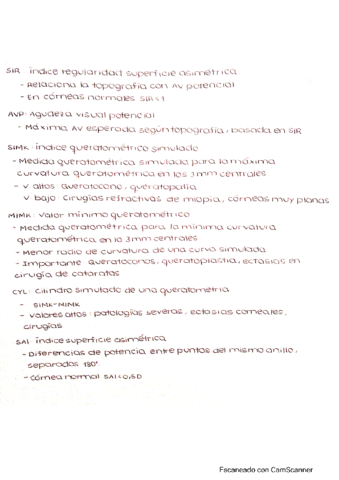 SIR: índice regularidad superficie asimétrica
- Relaciona la topografía con AV potencial
- En córneas normales SIR<1
AVP: Agudeza visual potencial
- Máxima AV esperada según topografía, basada en SIR
SIMK: índice queratométrico simulado
- Medida queratométrica simulada para la máxima
curvatura queratométrica en los 3mm centrales
- V altos: queratocono, queratopatía
V bajo: cirugías refractivas de miopía, córneas muy planas
MIMK: valor mínimo queratométrico
- Medida queratométrica para la mínima curvatura
queratométrica en lo 3mm centrales
- Menor radio de curvatura de una curva simulada
- Importante: queratoconos, queratoplastia, ectasias en
cirugía de cataratas
CYL: cilindro simulado de una queratometría
- SIMK-MIMK
- valores altos: patologías severas, ectasias corneales,
cirugías
SAI: índice superficie asimétrica
- Diferencias de potencia entre puntos del mismo anillo,
separadas 180º
- córnea normal SAI<0,5D
Escaneado con CamScanner